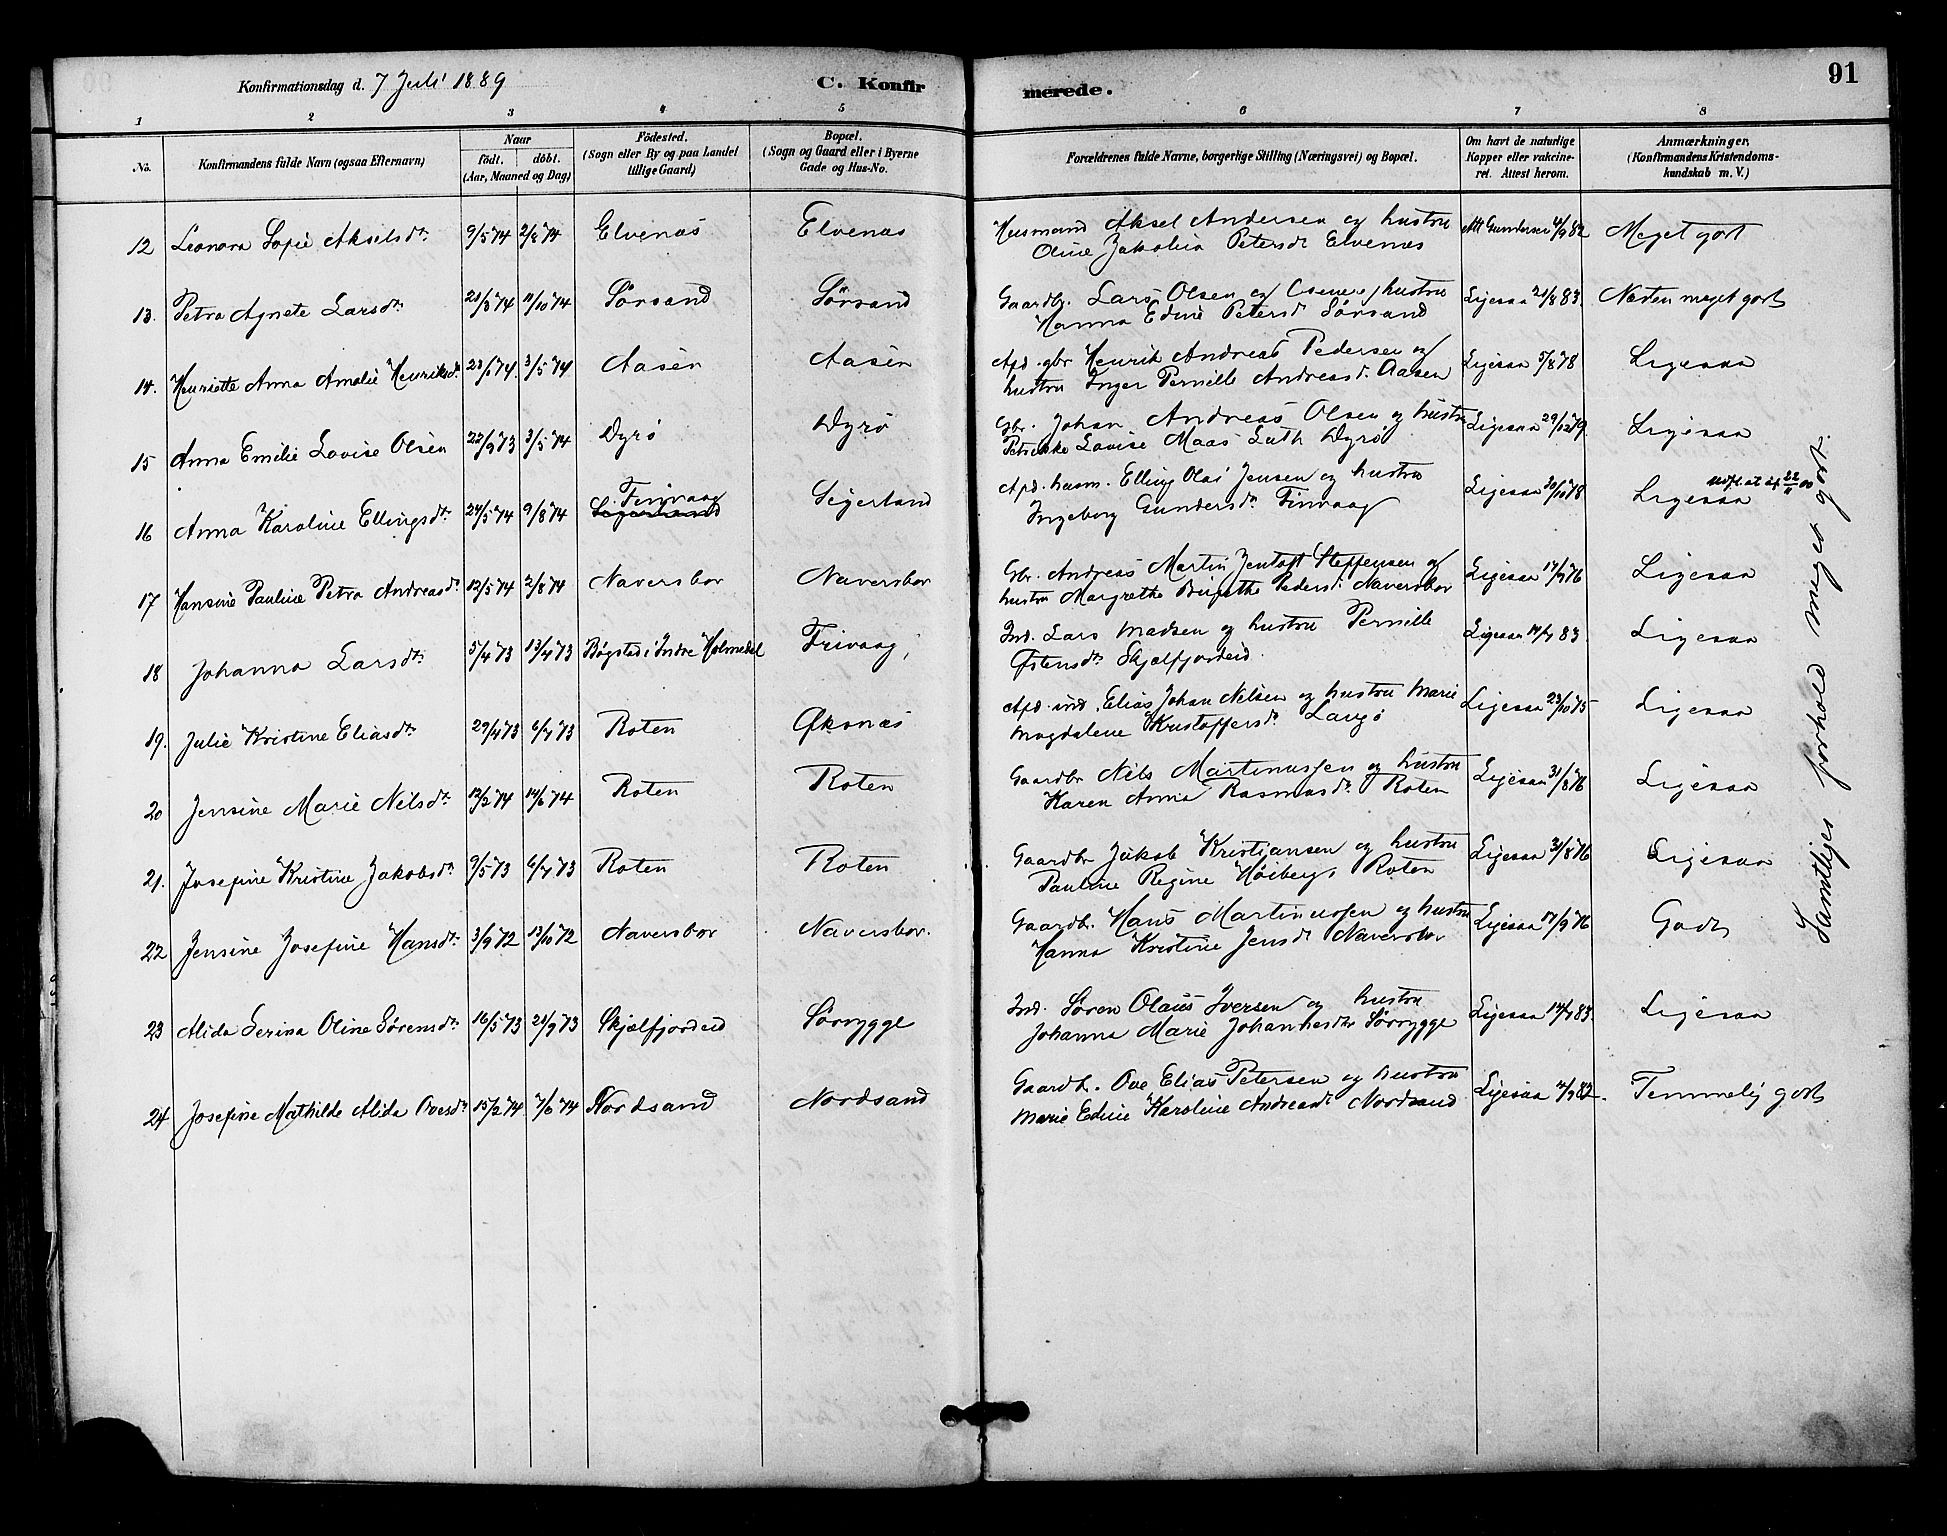 Konfirmationsdag d. 7 Juli 1889
C. Konfir
merede.
91
1 2 3 4 5 6 7 8
No.
Konfirmandens fulde Navn (ogsaa Efternavn)
Naar
födt. döbt.
(Aar, Maaned og Dag)
Födested.
(Sogn eller By og paa Landet
tillige Gaard)
Bopæl.
(Sogn og Gaard eller i Byerne
Gade og Hus-No.
Forældrenes fulde Navne, borgerlige Stilling (Næringsvei) og Bopæl.
Om havt de naturlige
Kopper eller vakcine-
ret. Attest herom.
Anmærkninger,
(Konfirmandens Kristendoms-
kundskab m. V.)
12 Leonora Sofie Akselsdtr 9/5 74 2/8 74 Elvenæs Elvenæs
Husmand Aksel Andersen og hustru
Oline Jakobia Petersdr Elvenæs
Att Gundersen 4/9 82 Meget godt
13. Petra Agnete Larsdtr 21/8 74 11/10 74 Sørsand Sørsand
Gaardbr. Lars Olsen og hustru
Hanna Edine Petersdr Sørsand
Ligesaa 21/8 83. Næsten meget godt
14. Henriette Anna Amalie Henriksdr 3/5 74 Aasen Aasen
Afd. gbr Henrik Andreas Pedersen og
hustru Inger Pernille Andreasdr. Aasen
Ligesaa 5/8 78 Ligesaa
15 Anna Emilie Lovise Olsen 22/9 73 3/5 74 Dyrø Dyrø
Gbr. Johan Andreas Olsen og hustru
Petrikke Lovise Maas Luth Dyrø
Ligesaa 29/12 79. Ligesaa
16 Anna Karoline Ellingsdtr 24/5 74 9/8 74 Finvaag Sigerland Sigerland
Afd. husm. Elling Olai Jensen og hustru
Ingeborg Gundersdr Finvaag
Ligesaa 20/10 78 Ligesaa
Udf. at af 22/11 00
17 Hansine Pauline Petra Andreasdr 12/5 74 2/8 74 Naversbor Naversbor
Gbr. Andreas Martin Jentoft Steffensen og
hustru Margrethe Birgitte Pedersdr Naversbor
Ligesaa 17/9 76 Ligesaa
18 Johanna Larsdtr 5/4 73 13/4 73 Bøgsted i Indre Holmedal
Ind. Lars Madsen og hustru Pernille
Østensdtr Skjelfjordeid.
Ligesaa 83. Ligesaa
19. Julie Kristine Eliasdtr 29/4 73 6/7 73 Roten Øksnæs
Afd. ind. Elias Johan Nilsen og hustru Marie
Magdalene Kristoffersdr Langø
Ligesaa 23/10 75 Ligesaa
20 Jensine Marie Nilsdtr 12/2 74 14/6 74 Roten Roten
Gaardbr Nils Martinussen og hustru
Karen Anna Rasmusdr. Roten
Ligesaa 31/8 76 Ligesaa
21. Josefine Kristine Jakobsdtr 9/5 73 6/7 73 Roten Roten
Gaardbr Jakob Kristiansen og hustru
Pauline Regine Høiberg, Roten
Ligesaa 31/8 76 Ligesaa
22 Jensine Josefine Hansdtr 3/9 72 13/10 72 Naversbor Naversbor.
Gaardbr. Hans Martinussen og hustru
Hanna Kristine Jensdr Naversbor
Ligesaa 17/9 76 Godt
23 Alida Serina Oline Sørensdtr 16/5 73 21/9 73 Skjelfjordeid Sørrygge
Ind. Søren Olaus Iversen og hustru
Johanna Marie Johannesdtr Sørrygge
Ligesaa 83. Ligesaa
24 Josefine Mathilde Alida Ovesdr 15/2 74 7/6 74 Nordsand Nordsand
Gaardbr. Ove Elias Petersen og hustru
Marie Edine Karoline Andreasdr Nordsand
Ligesaa 4/9 82. Temmelig godt
Samtliges forhold meget godt.